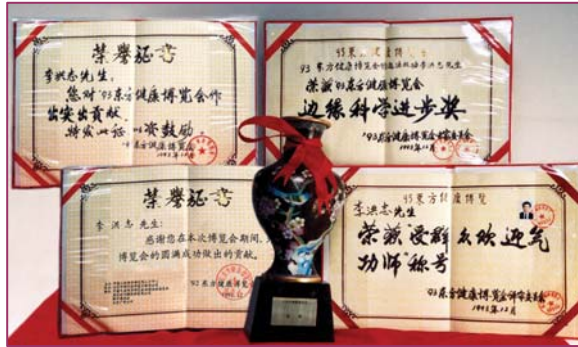 荣誉证书
李洪志先生：
您对'93东方健康博览会作
出突出贡献，
特发此证，以资鼓励。
东方健康博览会
1993年12月
'93东方健康博览会
荣获'93东方健康博览会
边缘科学进步奖
'93东方健康博览会评审委员会
1993年12月
荣誉证书
李洪志 先生：
感谢您在本次博览会期间，
博览会的圆满成功做出的贡献。
'93东方健康博览
'93东方健康博览
李洪志先生
荣获受群众欢迎气
功师称号
'93东方健康博览会评审委员会
1993年12月